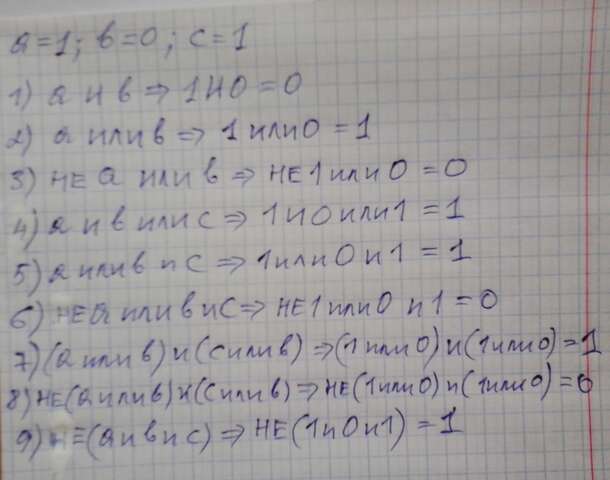 a=1; b=0; c=1
1) a и b ⇒ 1 и 0 = 0
2) a или b ⇒ 1 или 0 = 1
3) НЕ a или b ⇒ НЕ 1 или 0 = 0
4) a и b или c ⇒ 1 и 0 или 1 = 1
5) a или b и c ⇒ 1 или 0 и 1 = 1
6) НЕ a или b и c ⇒ НЕ 1 или 0 и 1 = 0
7) (a или b) и (c или b) ⇒ (1 или 0) и (1 или 0) = 1
8) НЕ (a или b) и (c или b) ⇒ НЕ (1 или 0) и (1 или 0) = 0
9) НЕ (a и b и c) ⇒ НЕ (1 и 0 и 1) = 1